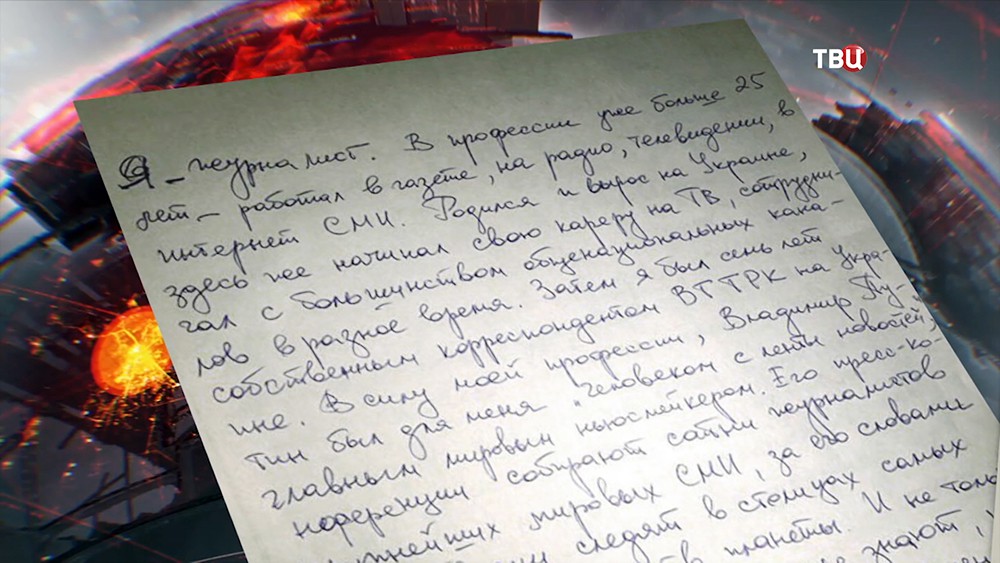 ТВЦ
Я – журналист. В профессии уже больше 25
лет – работал в газете, на радио, телевидении, в
интернет СМИ. Родился и вырос на Украине,
здесь же начинал свою карьеру на ТВ, сотрудни-
чал с большинством общенациональных кана-
лов в разное время. Затем я был семь лет
собственным корреспондентом ВГТРК на Укра-
ине. В силу моей профессии, Владимир Пу-
тин был для меня "человеком с ленты новостей",
главным мировым ньюсмейкером. Его пресс-ко-
нференции собирают сотни журналистов
мировых СМИ, за его словами
следят в столицах самых
планеты. И не толь
знают,